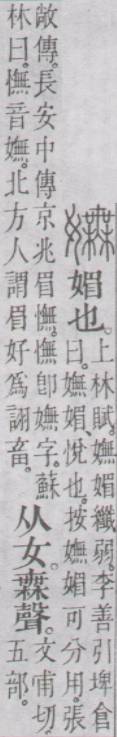 嫵
媚也。
上林賦。嫵媚纖弱。李善引埤倉
曰。嫵媚、悅也。按嫵媚可分用。張
敞傳。長安中傳京兆眉憮。憮卽嫵字。蘇
林曰。憮音嫵。北方人謂眉好爲詡畜。
从女。𣞤聲。
文甫切。
五部。